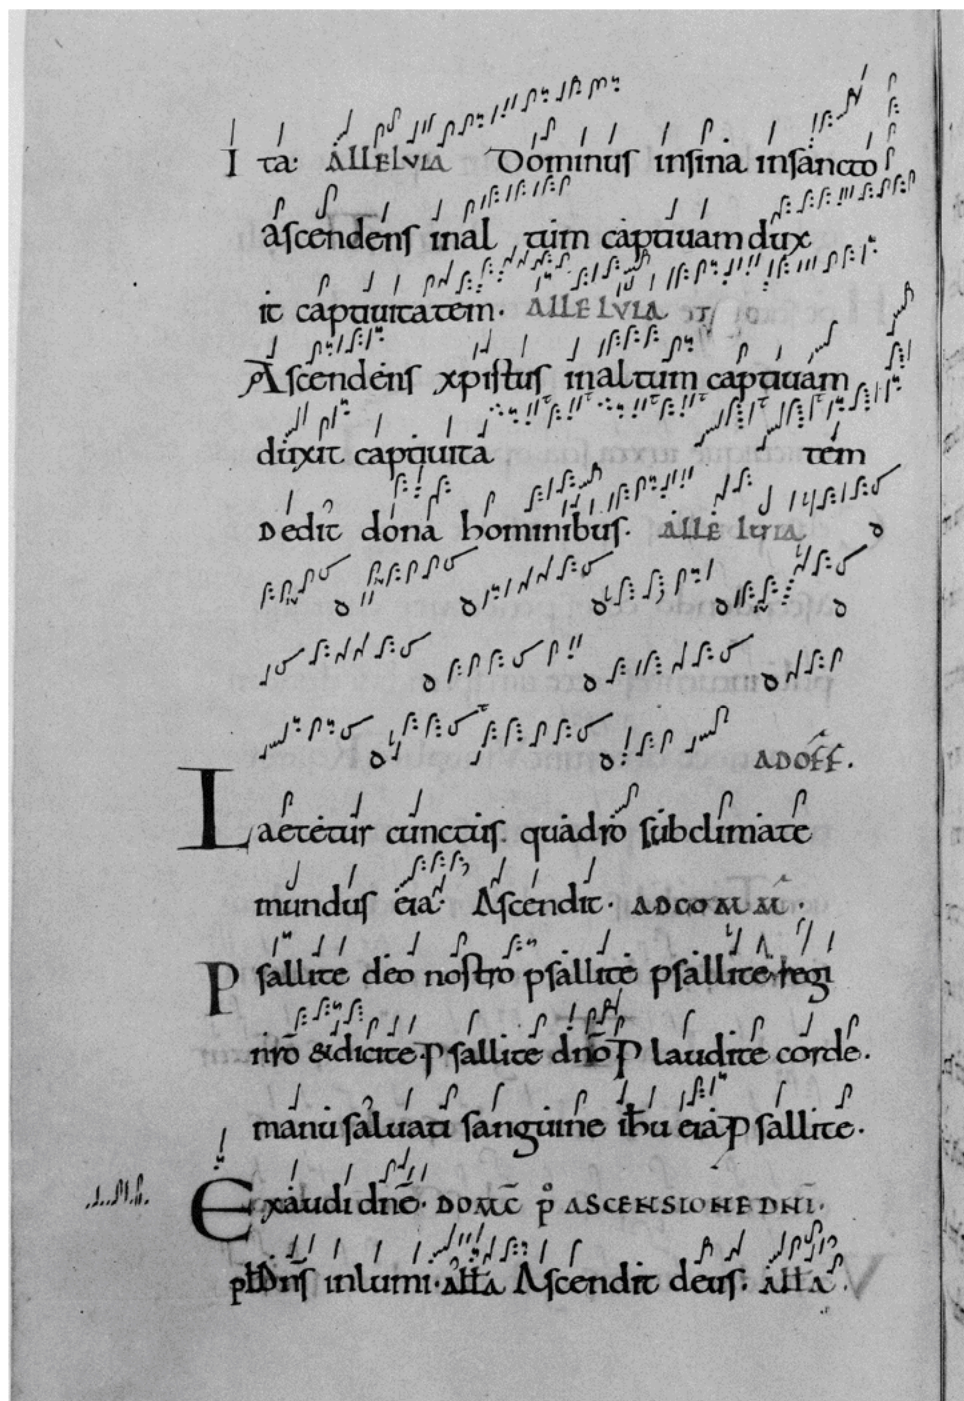 Ita: ALLELVIA Dominus insina insancto
ascendens inal tum captiuam dux
it captiuitatem. ALLELVIA
Ascendens xpistus inaltum captiuam
duxit captiuita tem
Dedit dona hominibus. ALLE LVIA
ADOFF.
Laetetur cunctus quadro sub climate
mundus eia. Ascendit. ADCOMM.
Psallite deo nostro psallite psallite regi
nro &dicite. P sallite dno P laudite corde.
manu saluati sanguine ihu eia P sallite.
Exaudi dne. DOMC P ASCENSIONE DNI.
Dns inlumi. alla Ascendit deus. alla.